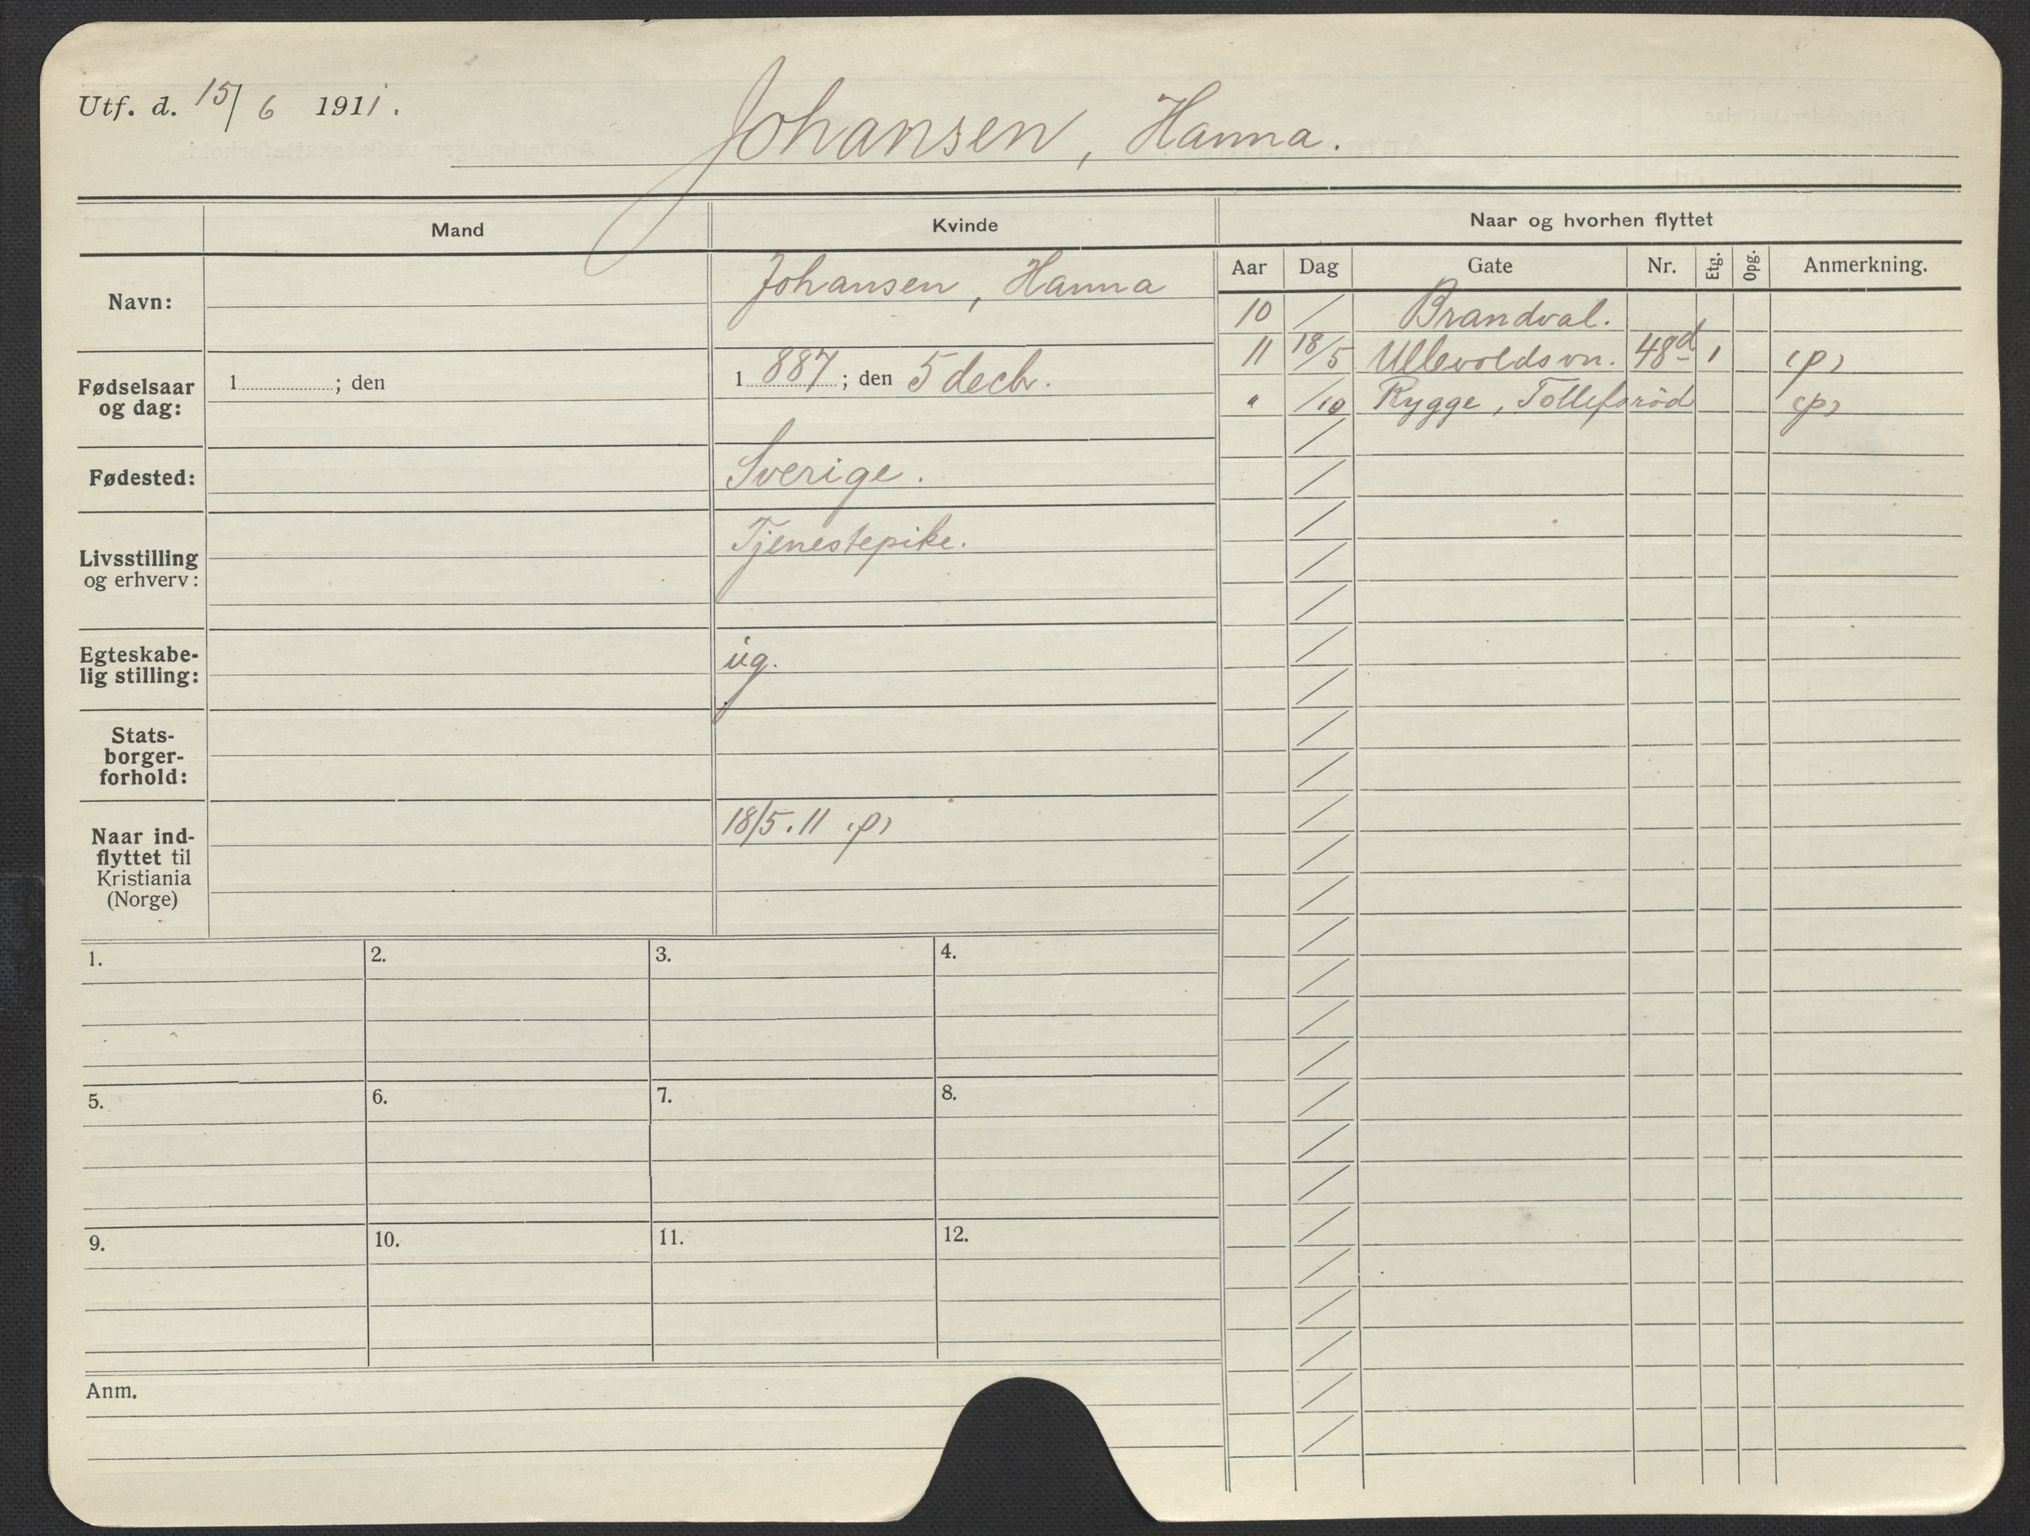 Utf. d. 15/6 1911.
Johansen, Hanna.
Mand
Kvinde
Naar og hvorhen flyttet
Aar Dag Gate Nr. Etg. Opg. Anmerkning.
Navn:
Johansen, Hanna
Fødselsaar
og dag:
1 ; den
1 887 ; den 5 decbr.
Fødested:
Sverige.
Livsstilling
og erhverv:
Tjenestepike.
Egteskabe-
lig stilling:
ug.
Stats-
borger-
forhold:
Naar ind-
flyttet til
Kristiania
(Norge)
18/5.11 (p)
10 / Brandval.
11 18/5 Ullevoldsvn. 48d 1 (p)
" /10 Rygge, Tollefsrød (p)
1. 2. 3. 4.
5. 6. 7. 8.
9. 10. 11. 12.
Anm.